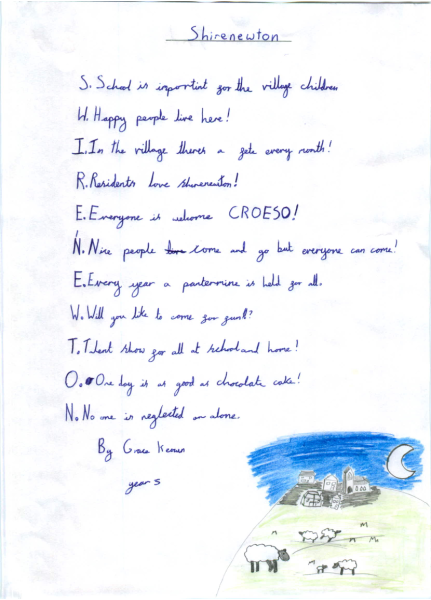 Shirenewton
S. School is inportint for the village children
H. Happy people live here!
I. In the village theres a fete every month!
R. Residents love shirenewton!
E. Everyone is welcome CROESO!
N. Nine people come and go but everyone can come!
E. Every year a pantermine is held for all.
W. Will you like to come for fun?
T. Tlent show for all at school and home!
O. One day is as good as chocolate cake!
N. No one is neglected or alone.
By Grace
year 5